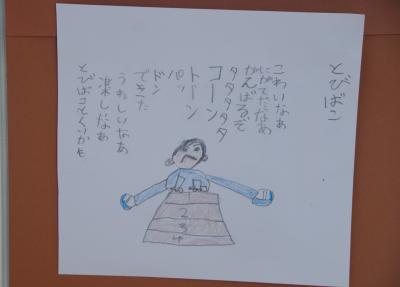 とびばこ
こわいなあ
にがてだなあ
がんばるぞ
タタタタタ
コーン
トーン
パッ
ドン
できた
うれしいなあ
楽しいなあ
とびばことくいかも
1
2
3
4